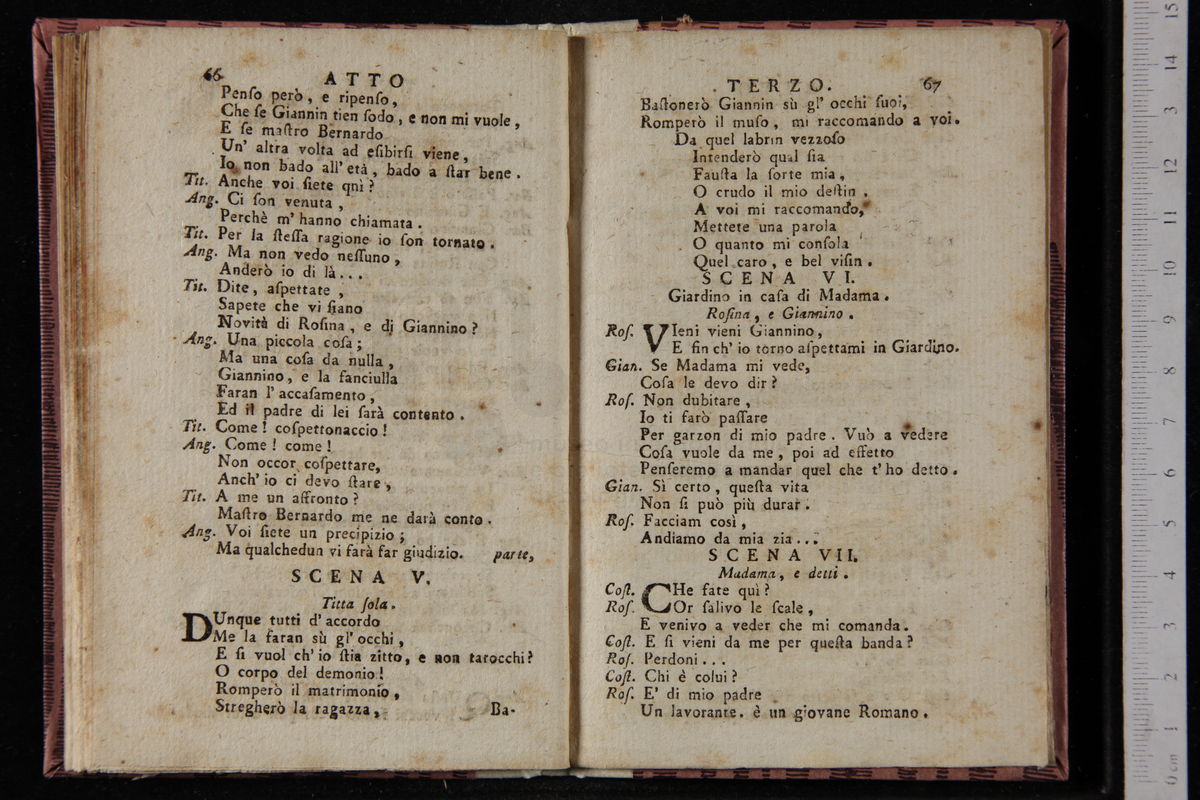 66 ATTO
Penſo però, e ripenſo,
Che ſe Giannin tien ſodo, e non mi vuole,
E ſe maſtro Bernardo
Un' altra volta ad eſibirſi viene,
Io non bado all' età, bado a ſtar bene.
Tit. Anche voi ſiete qnì?
Ang. Ci ſon venuta,
Perchè m' hanno chiamata.
Tit. Per la ſteſſa ragione io ſon tornato.
Ang. Ma non vedo neſſuno,
Anderò io di là...
Tit. Dite, aſpettate,
Sapete che vi ſiano
Novità di Roſina, e di Giannino?
Ang. Una piccola coſa;
Ma una coſa da nulla,
Giannino, e la fanciulla
Faran l' accaſamento,
Ed il padre di lei ſarà contento.
Tit. Come! coſpettonaccio!
Ang. Come! come!
Non occor coſpettare,
Anch' io ci devo ſtare,
Tit. A me un affronto?
Maſtro Bernardo me ne darà conto.
Ang. Voi ſiete un precipizio;
Ma qualchedun vi farà far giudizio. parte,
SCENA V.
Titta ſola.
DUnque tutti d' accordo
Me la faran sù gl' occhi,
E ſi vuol ch' io ſtia zitto, e non tarocchi?
O corpo del demonio!
Romperò il matrimonio,
Stregherò la ragazza,
Ba-
TERZO. 67
Baſtonerò Giannin sù gl' occhi ſuoi,
Romperò il muſo, mi raccomando a voi.
Da quel labrin vezzoſo
Intenderò qual ſia
Fauſta la ſorte mia,
O crudo il mio deſtin.
A voi mi raccomando,
Mettete una parola
O quanto mi conſola
Quel caro, e bel viſin.
SCENA VI.
Giardino in caſa di Madama.
Roſina, e Giannino.
Roſ. VIeni vieni Giannino,
E fin ch' io torno aſpettami in Giardino.
Gian. Se Madama mi vede,
Coſa le devo dir?
Roſ. Non dubitare,
Io ti farò paſſare
Per garzon di mio padre. Vuò a vedere
Coſa vuole da me, poi ad effetto
Penſeremo a mandar quel che t' ho detto.
Gian. Sì certo, queſta vita
Non ſi può più durar.
Roſ. Facciam così,
Andiamo da mia zia...
SCENA VII.
Madama, e detti.
Coſt. CHe fate quì?
Roſ. Or ſalivo le ſcale,
E venivo a veder che mi comanda.
Coſt. E ſi vieni da me per queſta banda?
Roſ. Perdoni...
Coſt. Chi è colui?
Roſ. E' di mio padre
Un lavorante. è un giovane Romano.
15
14
13
12
11
10
9
8
7
6
5
4
3
2
1
0 cm